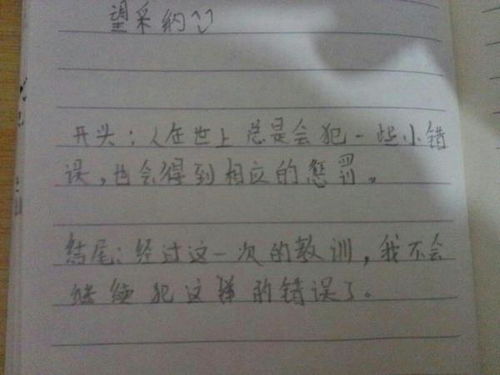 望采纳
开头:人在世上总是会犯一些小错
误,也会得到相应的惩罚。
结尾:经过这一次的教训,我不会
继续犯这样的错误了。